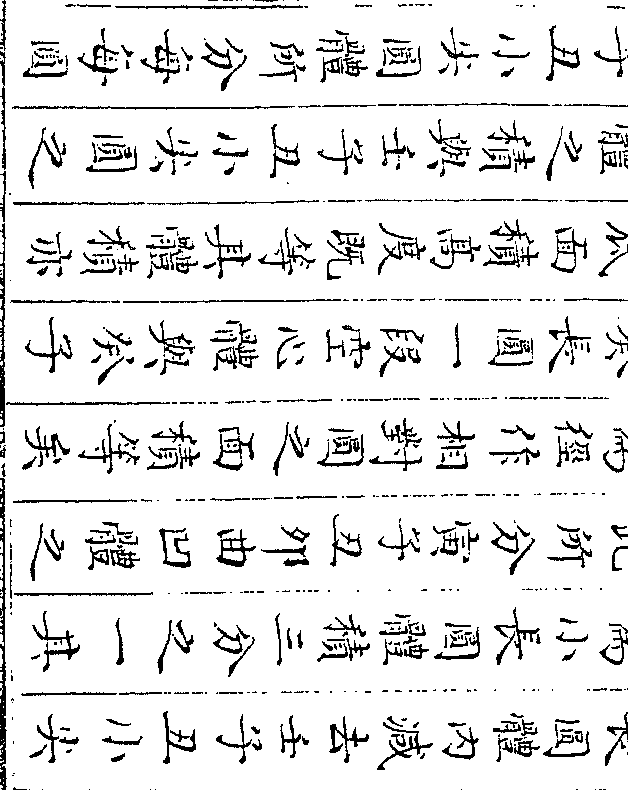 長圓體內減去壬子丑小尖
而小長圓體積三分之一其
此所分寅子丑卯曲凹體之
而徑作相對圓之面積等矣
長圓一段空心體與癸子
瓜面積高度既等其體積亦
體之積與壬子丑小尖圓之
子丑小尖圓體所分每每圓